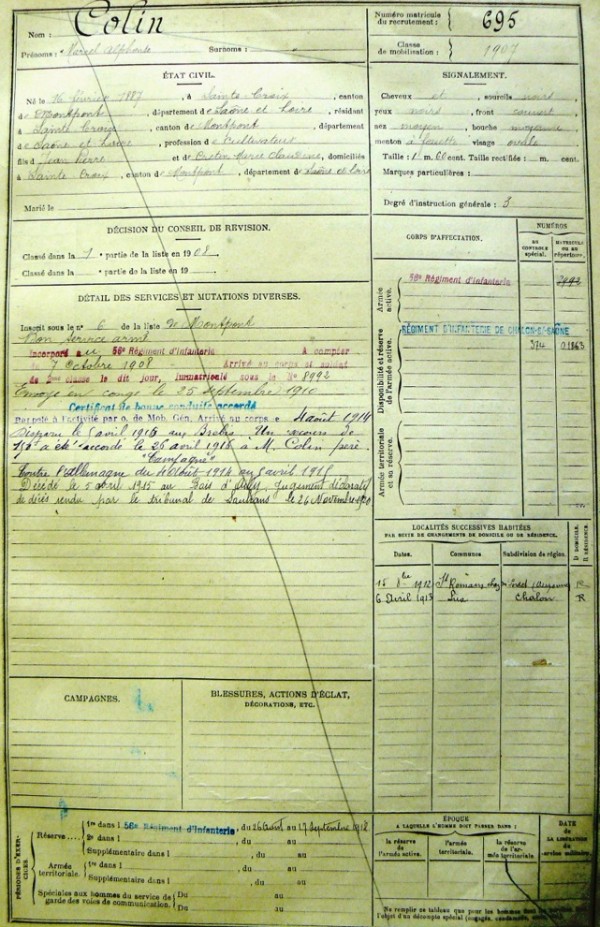 Nom : Colin
Prénoms : Marcel Alphonse Surnoms :
Numéro matricule du recrutement : 695
Classe de mobilisation : 1907
ÉTAT CIVIL.
Né le 16 février 1887, à Sainte Croix, canton
de Montpont, département de Saône et Loire, résidant
à Sainte Croix, canton de Montpont, département
de Saône et Loire, profession de Cultivateur
fils de Jean Pierre et de Claudine, domiciliés
à Sainte Croix, canton de Montpont, département de Saône et Loire
Marié le
SIGNALEMENT.
Cheveux et sourcils noirs
yeux noirs, front couvert
nez moyen, bouche moyenne
menton à fossette visage ovale
Taille : 1 m. 60 cent. Taille rectifiée : m. cent.
Marques particulières :
Degré d'instruction générale : 3
DÉCISION DU CONSEIL DE RÉVISION.
Classé dans la 1 partie de la liste en 1908
Classé dans la partie de la liste en 19
DÉTAIL DES SERVICES ET MUTATIONS DIVERSES.
Inscrit sous le n° 6 de la liste de Montpont
Bon service armé
Incorporé au 56e Régiment d'infanterie à compter
du 7 Octobre 1908 - Arrivé au corps et soldat
de 2ème classe le dit jour, immatriculé sous le N° 8992
Envoyé en congé le 25 Septembre 1910
Certificat de bonne conduite accordé
Rappelé à l'activité par o. de Mob. Gén. Arrivé au corps le 4 août 1914
Disparu le 5 avril 1915 au Bois Un secours de
150f a été accordé le 26 avril 1916 à M. Colin père
"Campagne"
Contre l'Allemagne du 4 Août 1914 au 5 avril 1915
Décédé le 5 avril 1915 au Bois d'Ailly, jugement déclaratif
de décès rendu par le tribunal de Louhans le 26 Novembre 1920
CORPS D'AFFECTATION.
NUMÉROS
AU CONTRÔLE spécial.
MATRICULE OU AU répertoire.
Armée active.
56e Régiment d'Infanterie 8992
Disponibilité et réserve de l'armée active.
RÉGIMENT D'INFANTERIE DE CHALON-S-SAÔNE
574 01863
Armée territoriale et sa réserve.
LOCALITÉS SUCCESSIVES HABITÉES
PAR SUITE DE CHANGEMENTS DE DOMICILE OU DE RÉSIDENCE.
Dates. Communes Subdivision de région. D DOMICILE. R RÉSIDENCE.
15 1912 St Romain R
6 Avril 1913 Chalon R
CAMPAGNES.
BLESSURES, ACTIONS D'ÉCLAT,
DÉCORATIONS, ETC.
PÉRIODES D'EXERCICES.
Réserve
1re dans l 56e Régiment d'Infanterie, du 26 Août au 17 Septembre 1912
2e dans l , du au
Supplémentaire dans l , du au
Armée territoriale.
1re dans l , du au
Supplémentaire dans l , du au
Spéciales aux hommes du service de garde des voies de communication. Du au
Du au
ÉPOQUE
A LAQUELLE L'HOMME DOIT PASSER DANS :
la réserve de l'armée active.
l'armée territoriale.
la réserve de l'armée territoriale
DATE
de LA LIBÉRATION du service militaire.